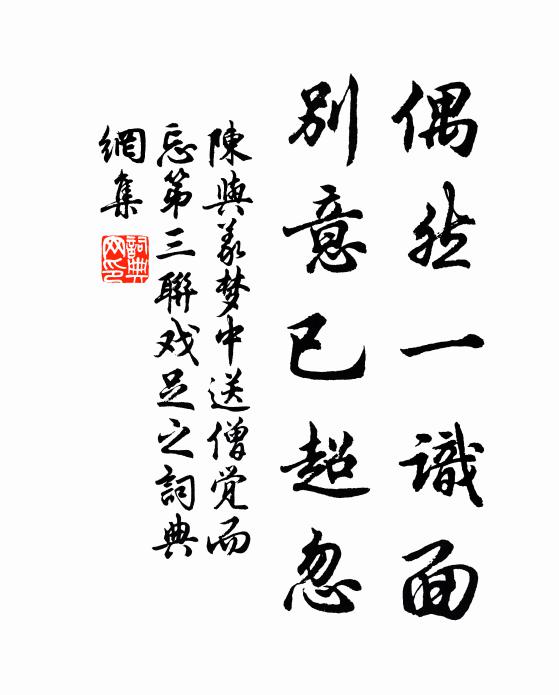 偶然一識面
別意已超忽
陳與義梦中送僧覚而
忘第三聯戏足之詞典
網集
詞典網印